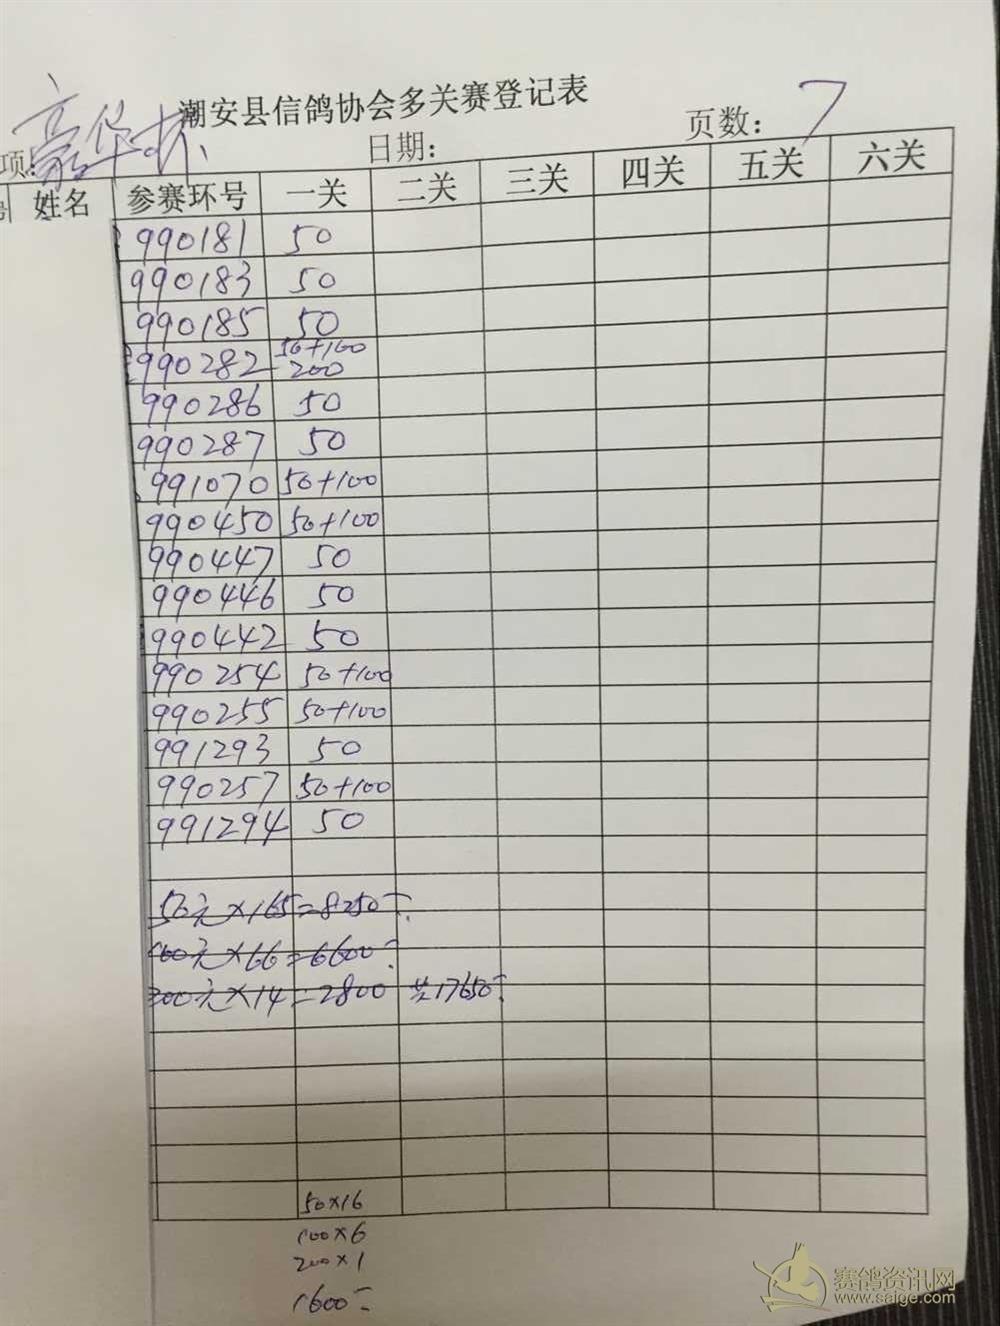 潮安县信鸽协会多关赛登记表
项: 豪华杯 日期: 页数: 7
号 姓名 参赛环号 一关 二关 三关 四关 五关 六关
990181 50
990183 50
990185 50
990282 50+100
200
990286 50
990287 50
991070 50+100
990450 50+100
990447 50
990446 50
990442 50
990254 50+100
990255 50+100
991293 50
990257 50+100
991294 50
50元×165=8250元
100元×66=6600元
200元×14=2800 共17650元
50×16
100×6
200×1
1600元
赛鸽资讯网
www.saige.com